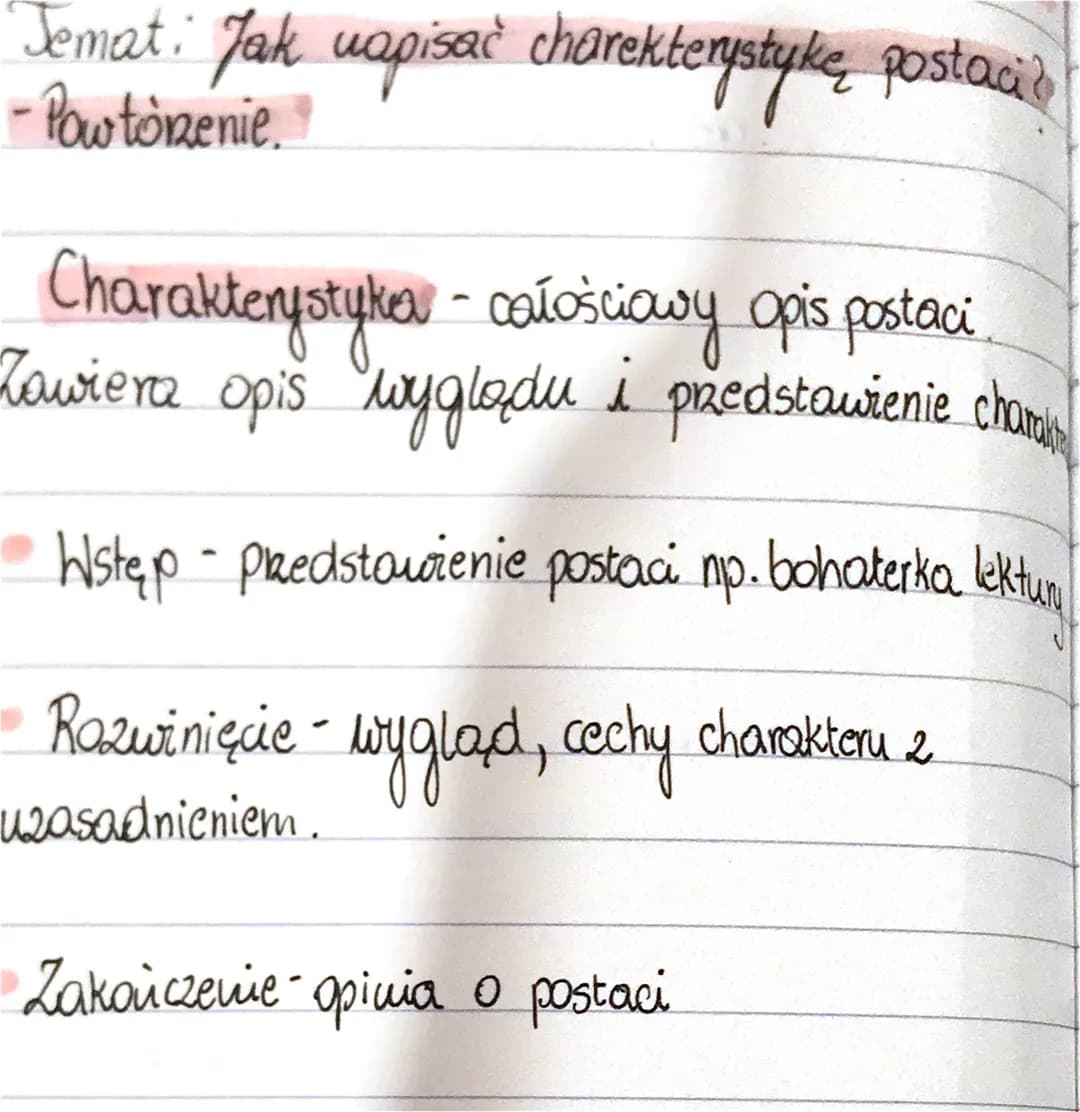 Temat: Jak napisać charekterystykę postaci?
- Powtórzenie.
Charakterystyka - całościowy opis postaci.
Zawiera opis wyglądu i przedstawienie
• Wstęp - przedstawienie postaci np. bohaterka lektury
• Rozwinięcie - wygląd, cechy charakteru z
uzasadnieniem.
• Zakończenie - opinia o postaci